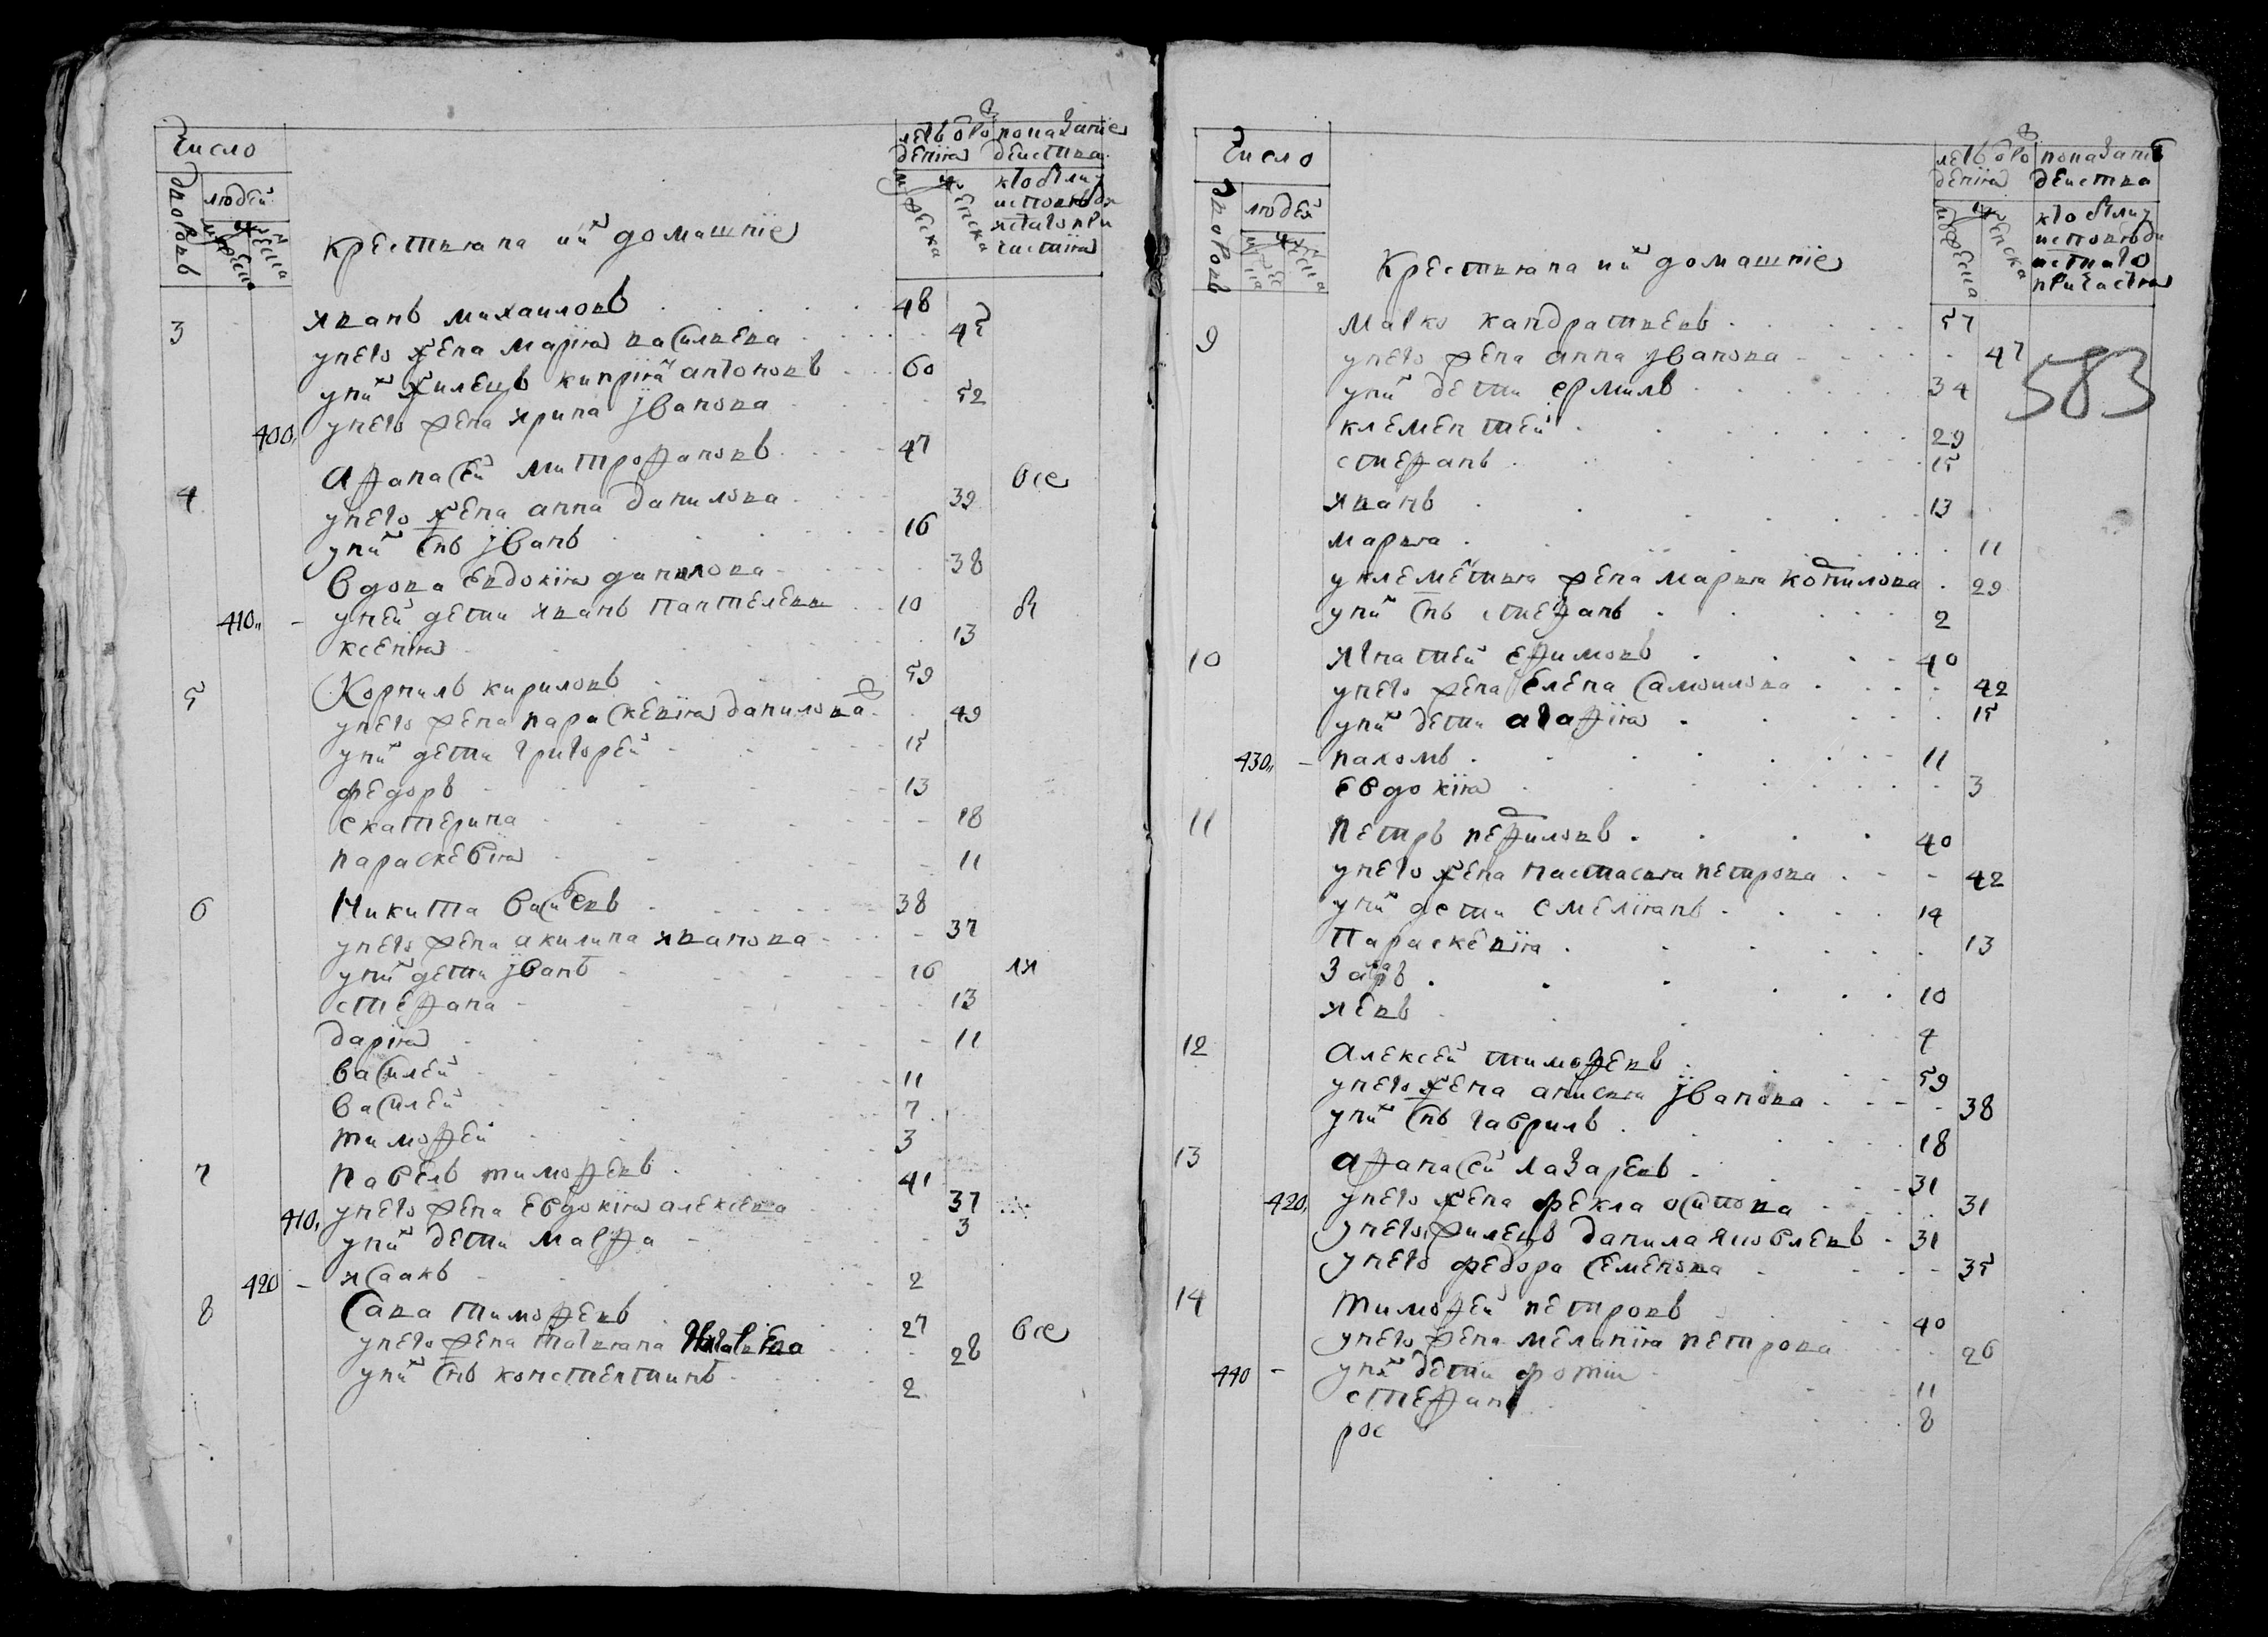 Число
дворовъ
людей
мужеска
женска
Крестьяна ии домашние
летъ отро
дения
мужеска
женска
показание
действа
кто былъ у
исповеди
и святого при
частия
3 Иванъ Михаиловъ 48
у него жена Мария Васильева 45
у них жилецъ Киприянъ Антоновъ 60
400 у него жена Ирина Иванова 52
4 Афанасей Митрофановъ 47
у него жена Анна Данилова 39 все
у них снъ Иванъ 16
вдова Евдокия Данилова 38
410 у ней дети Иванъ Пантелеевъ 10
Ксения 13
5 Корнилъ Кириловъ 59
у него жена Параскевия Данилова 49
у них дети Григорей 15
Федоръ 13
Екатерина 18
Параскевия 11
6 Никита Васиевъ 38
у него жена Акилина Иванова 37
у них дети Иванъ 16
Стефана 13
Дария 11
Василей 11
Василей 7
Тимофей 3
7 Павелъ Тимофеевъ 41
у него жена Евдокия Алексеева 37
410 у них дети Марфа 3
420 Исаакъ 2
8 Сава Тимофеевъ 27 все
у него жена Татьяна 28
у них снъ Констентинъ 2
Число
дворовъ
людей
Крестьяна ии домашние
летъ отро
дения
мужеска
женска
показание
действа
кто былъ у
исповеди
и святого
причастия
583
9 Марко Кандратьевъ 57
у него жена Анна Иванова 47
у них дети Ермилъ 34
Клементей 29
Стефанъ 15
Иванъ 13
Марья 11
у Клеметья жена Марья Копилова 29
у них снъ Стефанъ 2
10 Игнатей Ефимовъ 40
у него жена Елена Самоилова 42
у них дети Агафия 15
430 Пахомъ 11
Евдокия 3
11 Петръ Нефиловъ 40
у него жена Настасья Петрова 42
у них дети Емелиянъ 14
Параскевия 13
Захаръ 10
Иевъ 4
12 Алексей Тимофеевъ 59
у него жена Анисья Иванова 38
у них снъ Гаврилъ 18
13 Афанасей Лазаревъ 31
420 у него жена Фекла Осипова 31
у него жилецъ Данила Яковлевъ 31
у него Федора Семенова 35
14 Тимофей Петровъ 40
у него жена Мелания Петрова 26
440 у них дети Фотии 11
Стефанъ 8
рос